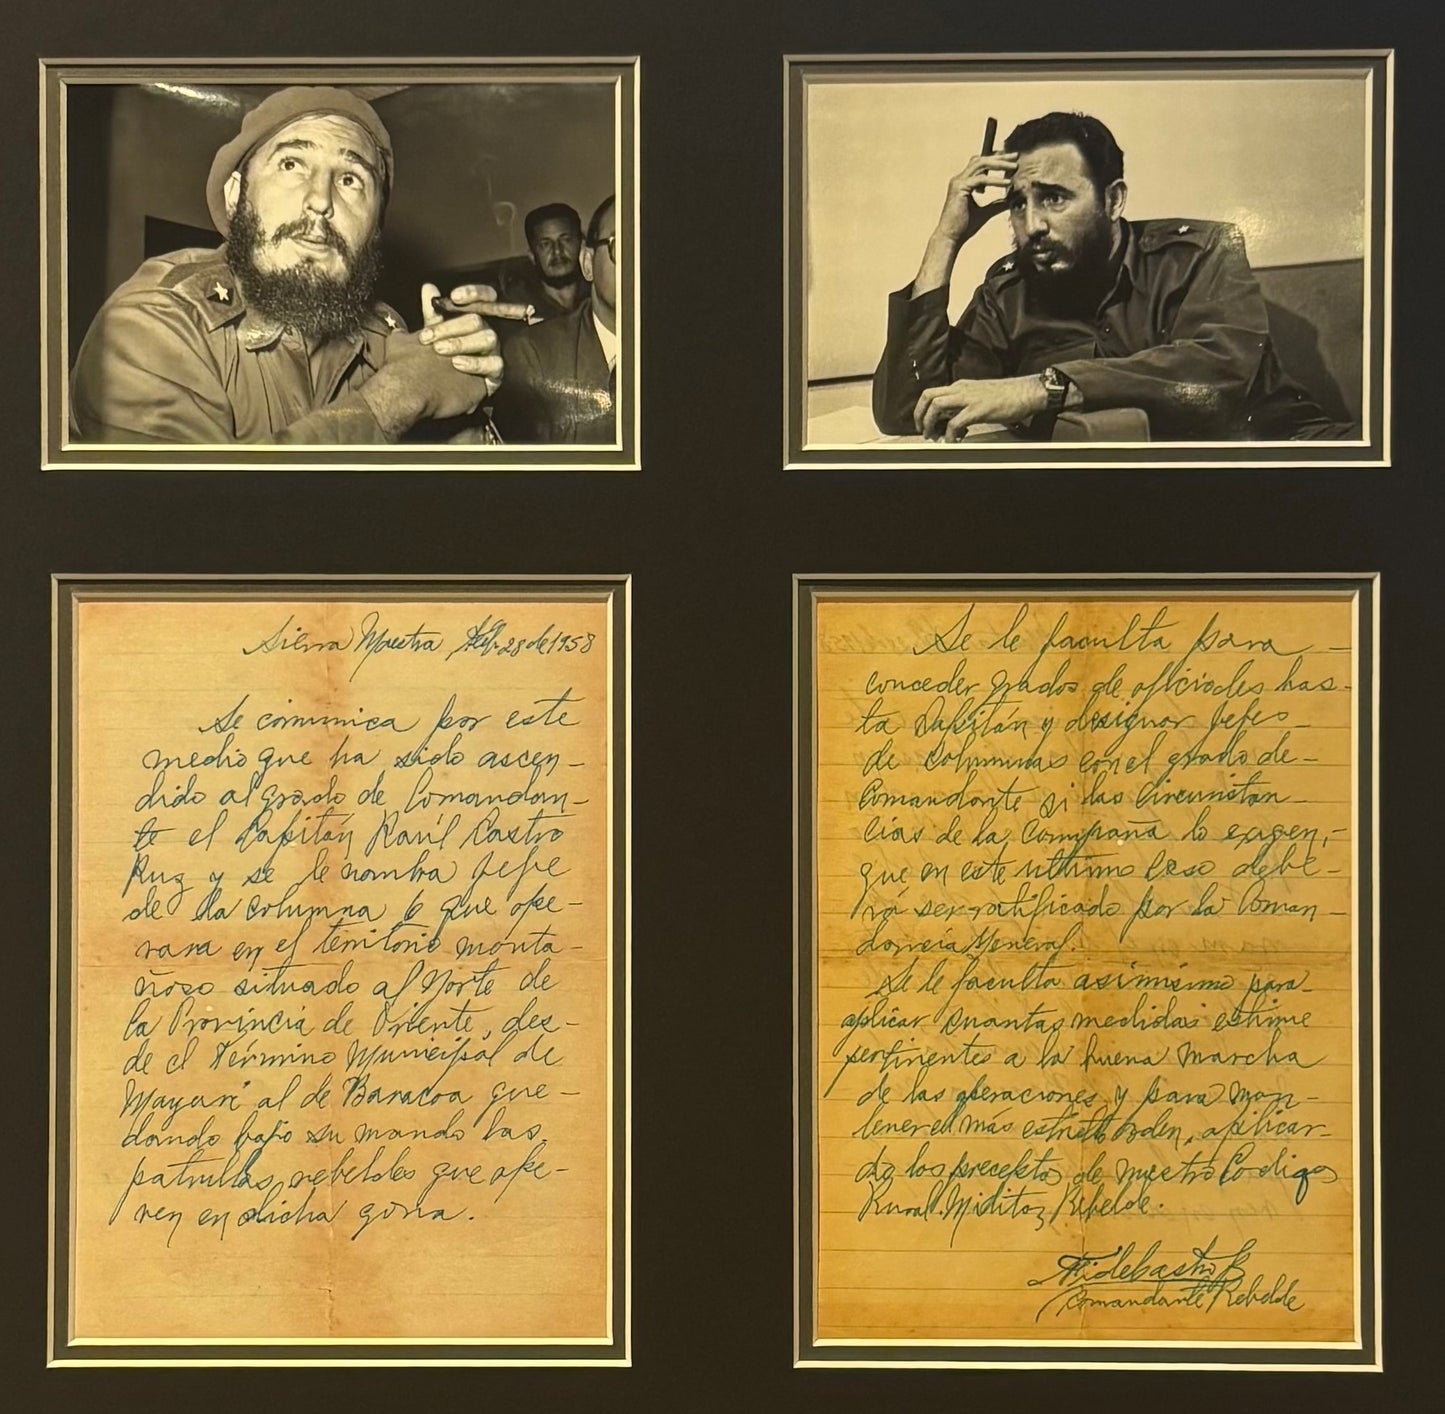 Sierra Maestra, Feb. 28 de 1958
Se comunica por este
medio que ha sido ascen-
dido al grado de Comandan-
te el Capitán Raúl Castro
Ruz y se le nombra Jefe
de la columna 6 que ope-
rara en el territorio monta-
ñoso situado al Norte de
la Provincia de Oriente, des-
de el Término Municipal de
Mayarí al de Baracoa que-
dando bajo su mando las
patrullas rebeldes que ope-
ren en dicha zona.
Se le faculta para
conceder grados de oficiales has-
ta Capitán y designar Jefes
de Columnas con el grado de
Comandante si las circunstan-
cias de la Campaña lo exigen,
que en este ultimo caso debe-
rá ser ratificado por la Coman-
dancia General.
Se le faculta asimismo para
aplicar cuantas medidas estime
pertinentes a la buena marcha
de las operaciones y para man-
tener el más estricto orden, aplican-
do los preceptos de nuestro Codigo
Rural Militar Rebelde.
Fidel Castro R
Comandante Rebelde